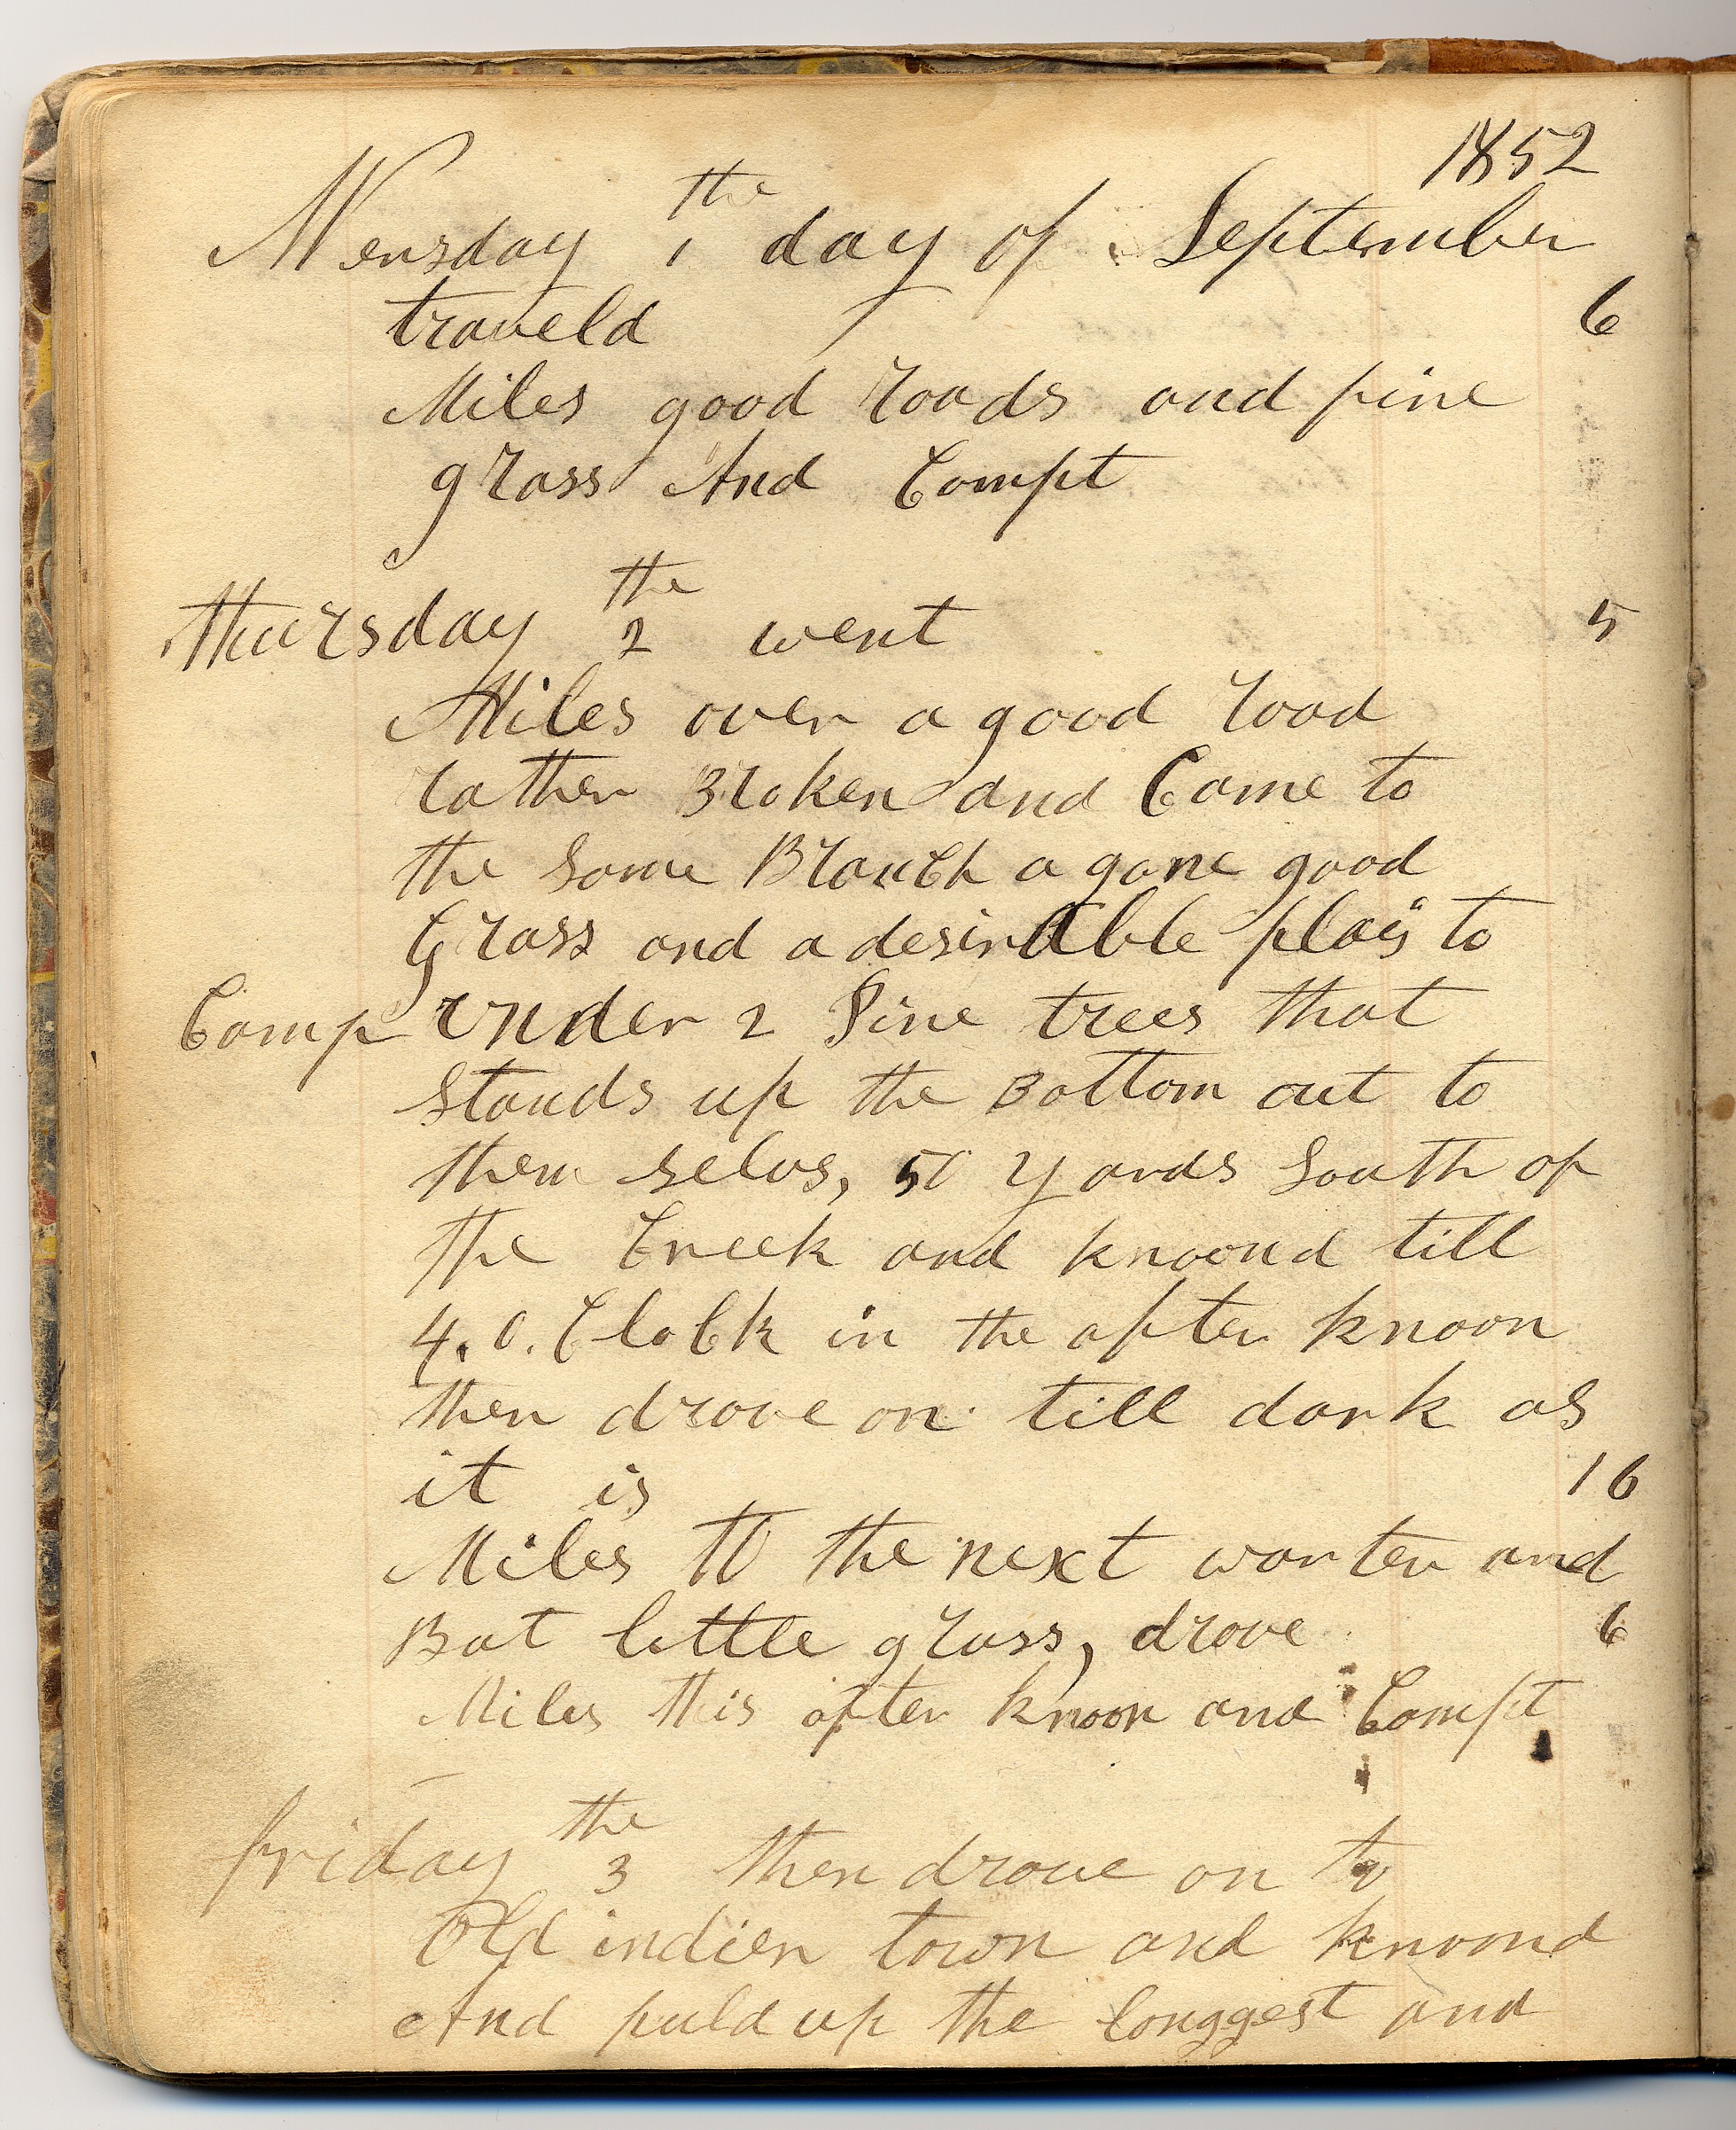 1852
Wensday the 1 day of September
traveld 6
Miles good roads and fine
grass And Campt
thursday the 2 went 5
Miles over a good road
rather Broken and Came to
the Same Branch a gane good
Grass and a desirable plais to
Camp under 2 Pine trees that
Stands up the Bottom out to
them selvs, 50 yards South of
the Creek and knoond till
4.O. Clock in the after knoon
then drove on till dark as
it is 16
Miles to the next warter and
But little grass, drove 6
Miles this after knoon and Campt
friday the 3 then drove on to
Old indien town and knoond
And puld up the longgest and